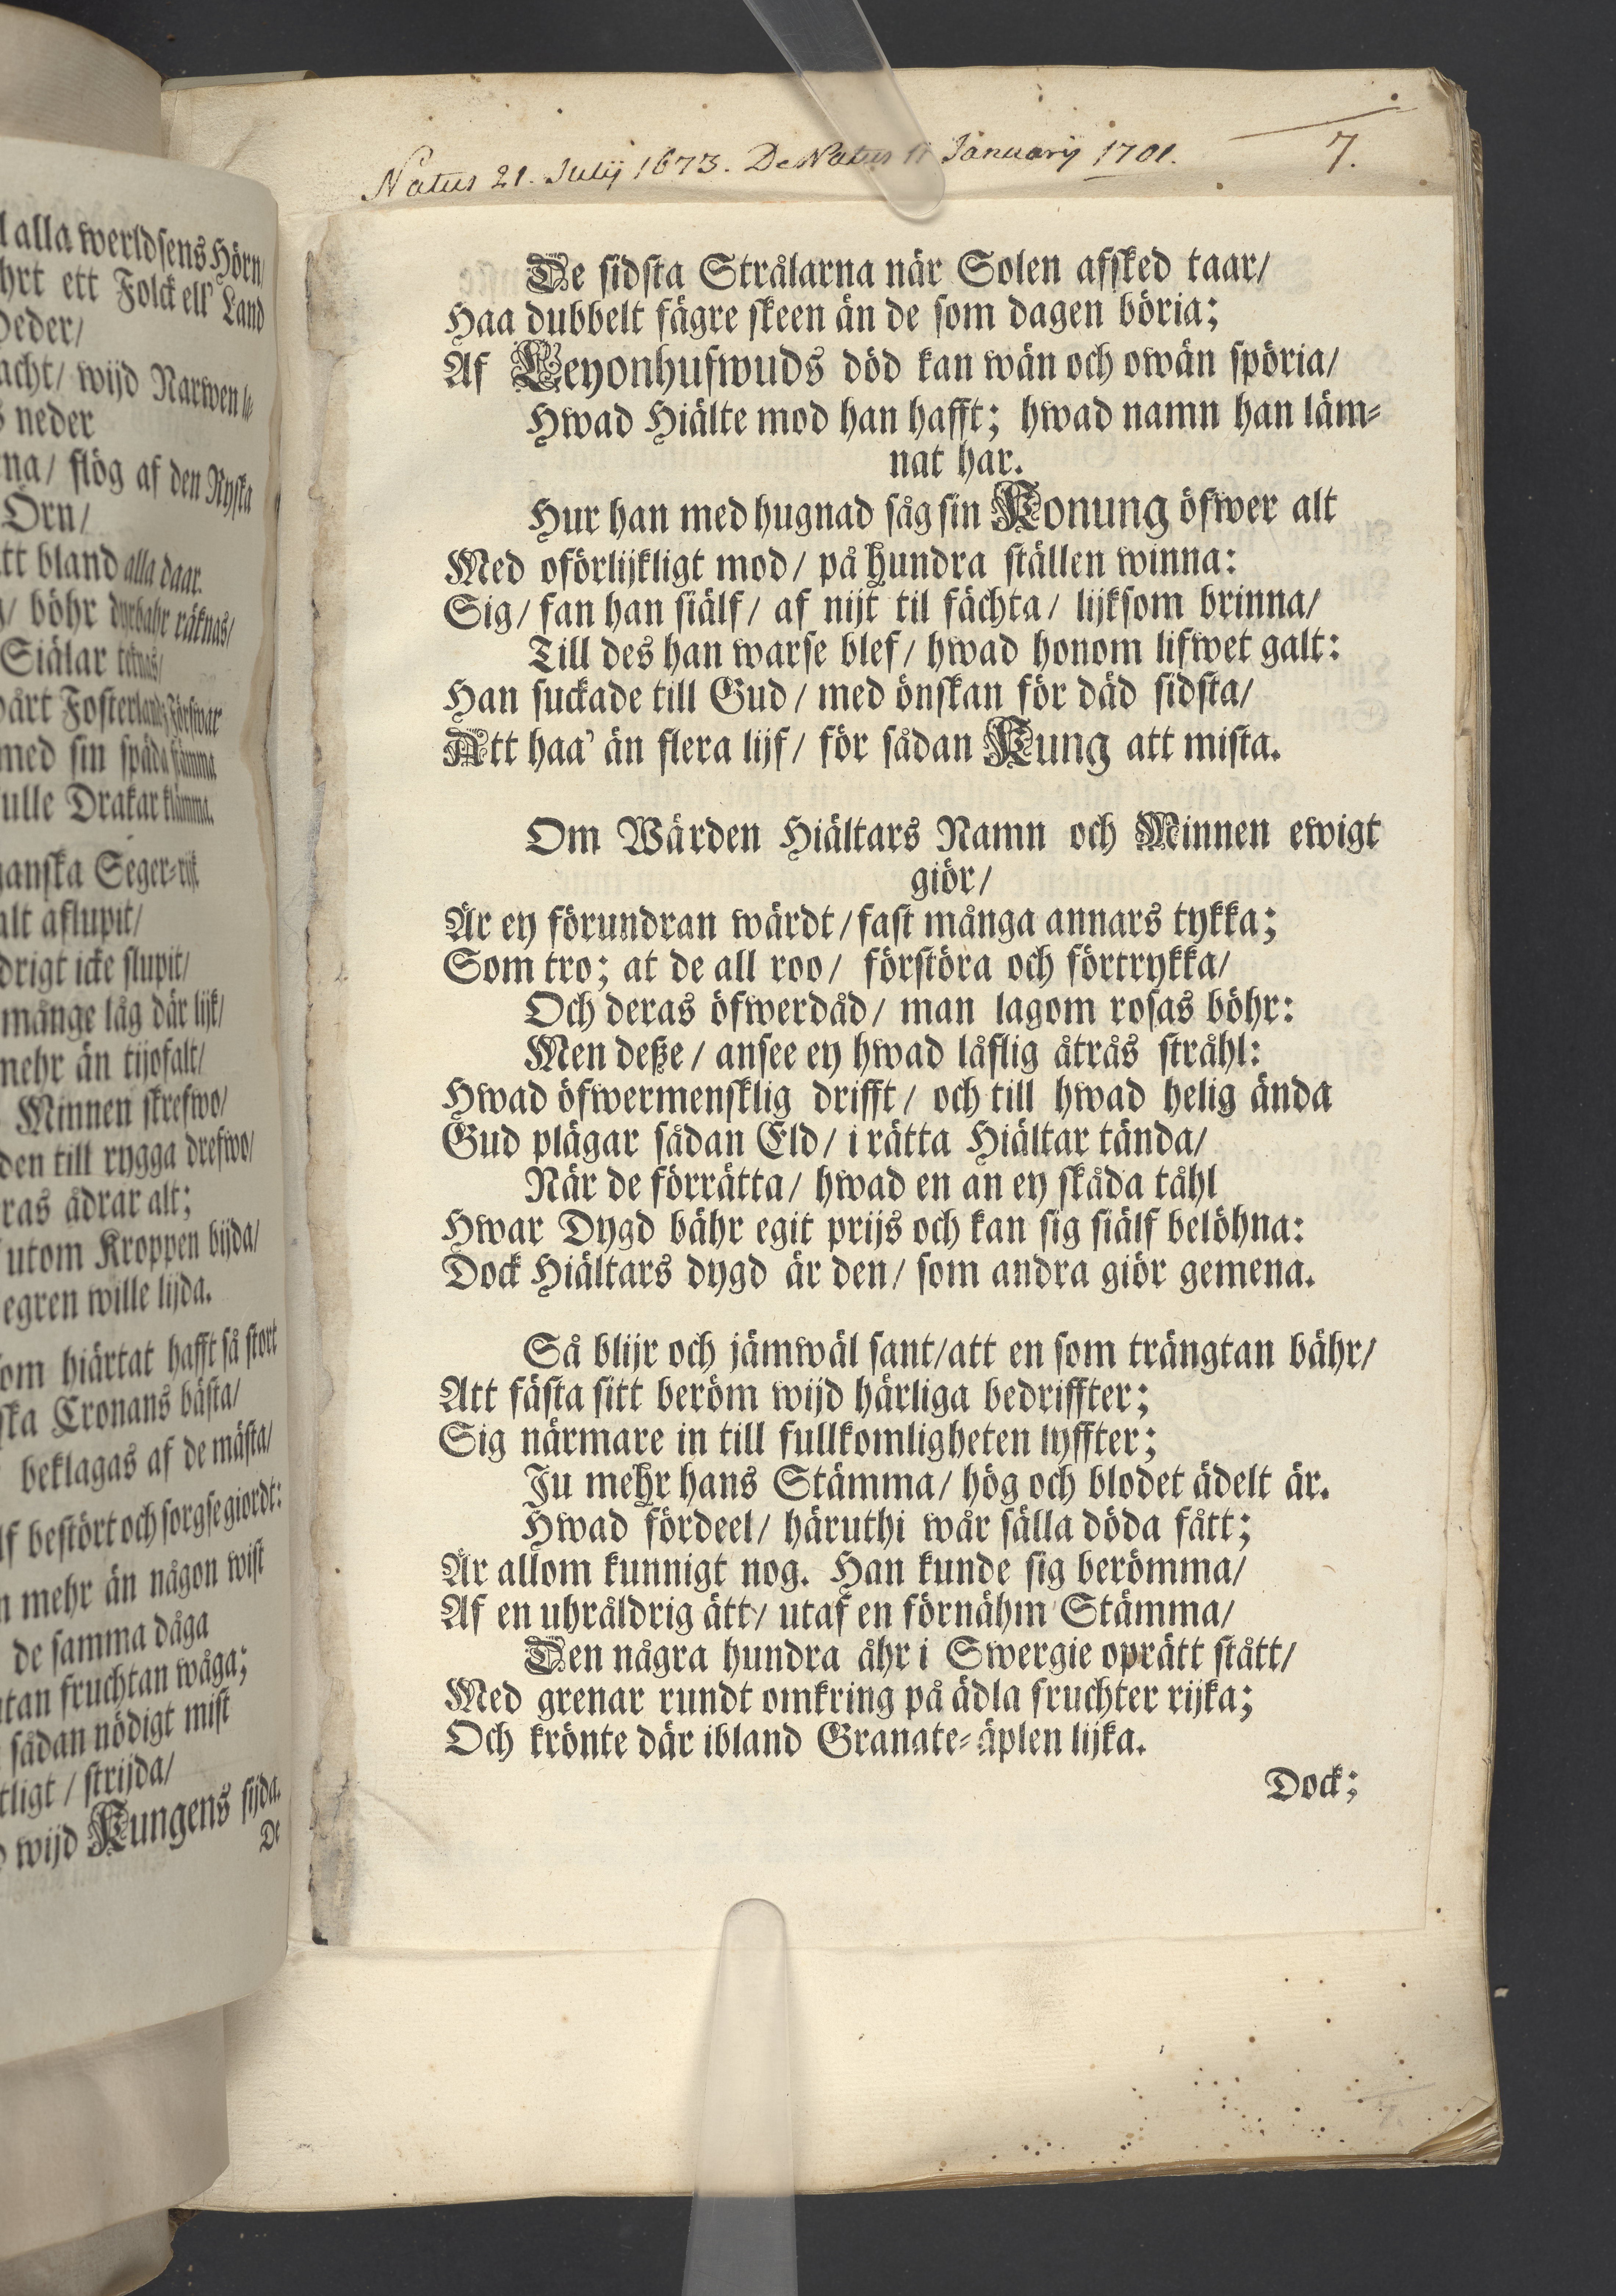 l alla werldsens Hörn/
hrt ett Folck ell' Land
Deder/
acht/ wijd Narwen
neder
na/ flög af den Ryska
Örn/
tt bland alla daar.
/ böhr dyrbahr räknas/
Siälar
årt Fosterlandz Förswar
med sin späda stämma
ulle Drakar klämma.
anska Seger-rijk
alt aflupit/
drigt icke slupit/
månge låg där lijk/
mehr än tijofalt/
Minnen skrefwo/
den till rygga drefwo/
ras ådrar alt;
utom Kroppen bijda/
egren wille lijda.
om hiärtat hafft så stort
ska Cronans bästa/
beklagas af de mästa/
lf bestört och sorgse giordt:
n mehr än någon wist
de samma dåga
tan fruchtan wåga;
sådan nödigt mist
tligt/ strijda/
wijd Kungens sijda.
De
Natus 21. Julij 1673. DeNatus 11 Januarij 1701. 7.
De sidsta Strålarna när Solen afsked taar/
Haa dubbelt fägre skeen än de som dagen böria;
Af Leyonhufwuds död kan wän och owän spöria/
Hwad Hiälte mod han hafft; hwad namn han läm-
nat har.
Hur han med hugnad såg sin Konung öfwer alt
Med oförlijkligt mod/ på hundra ställen winna:
Sig/ fan han siälf/ af nijt til fächta/ lijksom brinna/
Till des han warse blef/ hwad honom lifwet galt:
Han suckade till Gud/ med önskan för däd sidsta/
Att haa' än flera lijf/ för sådan Kung att mista.
Om Wärden Hiältars Namn och Minnen ewigt
giör/
Är ey förundran wärdt/ fast många annars tykka;
Som tro; at de all roo/ förstöra och förtrykka/
Och deras öfwerdåd/ man lagom rosas böhr:
Men deße/ ansee ey hwad låflig åtrås stråhl:
Hwad öfwermensklig drifft/ och till hwad helig ända
Gud plägar sådan Eld/ i rätta Hiältar tända/
När de förrätta/ hwad en an ey skåda tåhl
Hwar Dygd bähr egit prijs och kan sig siälf belöhna:
Dock Hiältars dygd är den/ som andra giör gemena.
Så blijr och jämwäl sant/ att en som trängtan bähr/
Att fästa sitt beröm wijd härliga bedriffter;
Sig närmare in till fullkomligheten lyffter;
Ju mehr hans Stämma/ hög och blodet ädelt är.
Hwad fördeel/ häruthi wår sälla döda fått;
Är allom kunnigt nog. Han kunde sig berömma/
Af en uhråldrig ätt/ utaf en förnähm Stämma/
Den några hundra åhr i Swergie oprätt stått/
Med grenar rundt omkring på ädla fruchter rijka;
Och krönte där ibland Granate-äplen lijka.
Dock;